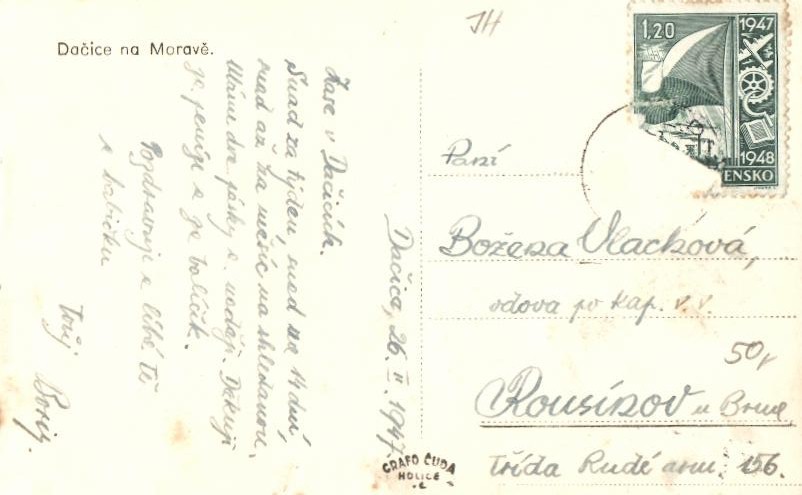 Dačice na Moravě.
JH
1,20
1947
1948
ENSKO
Zase v Dačicích.
Snad za týden, snad na 14 dní,
snad až za měsíc na shledanou.
Máme dva pásky a nedají. Děkuji
za peníze a za balíček.
Pozdravuje a líbá Tě
a babičku
Tvůj Boris.
Dačice, 26. II. 1947.
Paní
Božena Vlachová,
vdova po kap. v. v.
50,-
Rousínov u Brna
Třída Rudé arm. 156.
GRAFO ČUDA
HOLICE
-Č